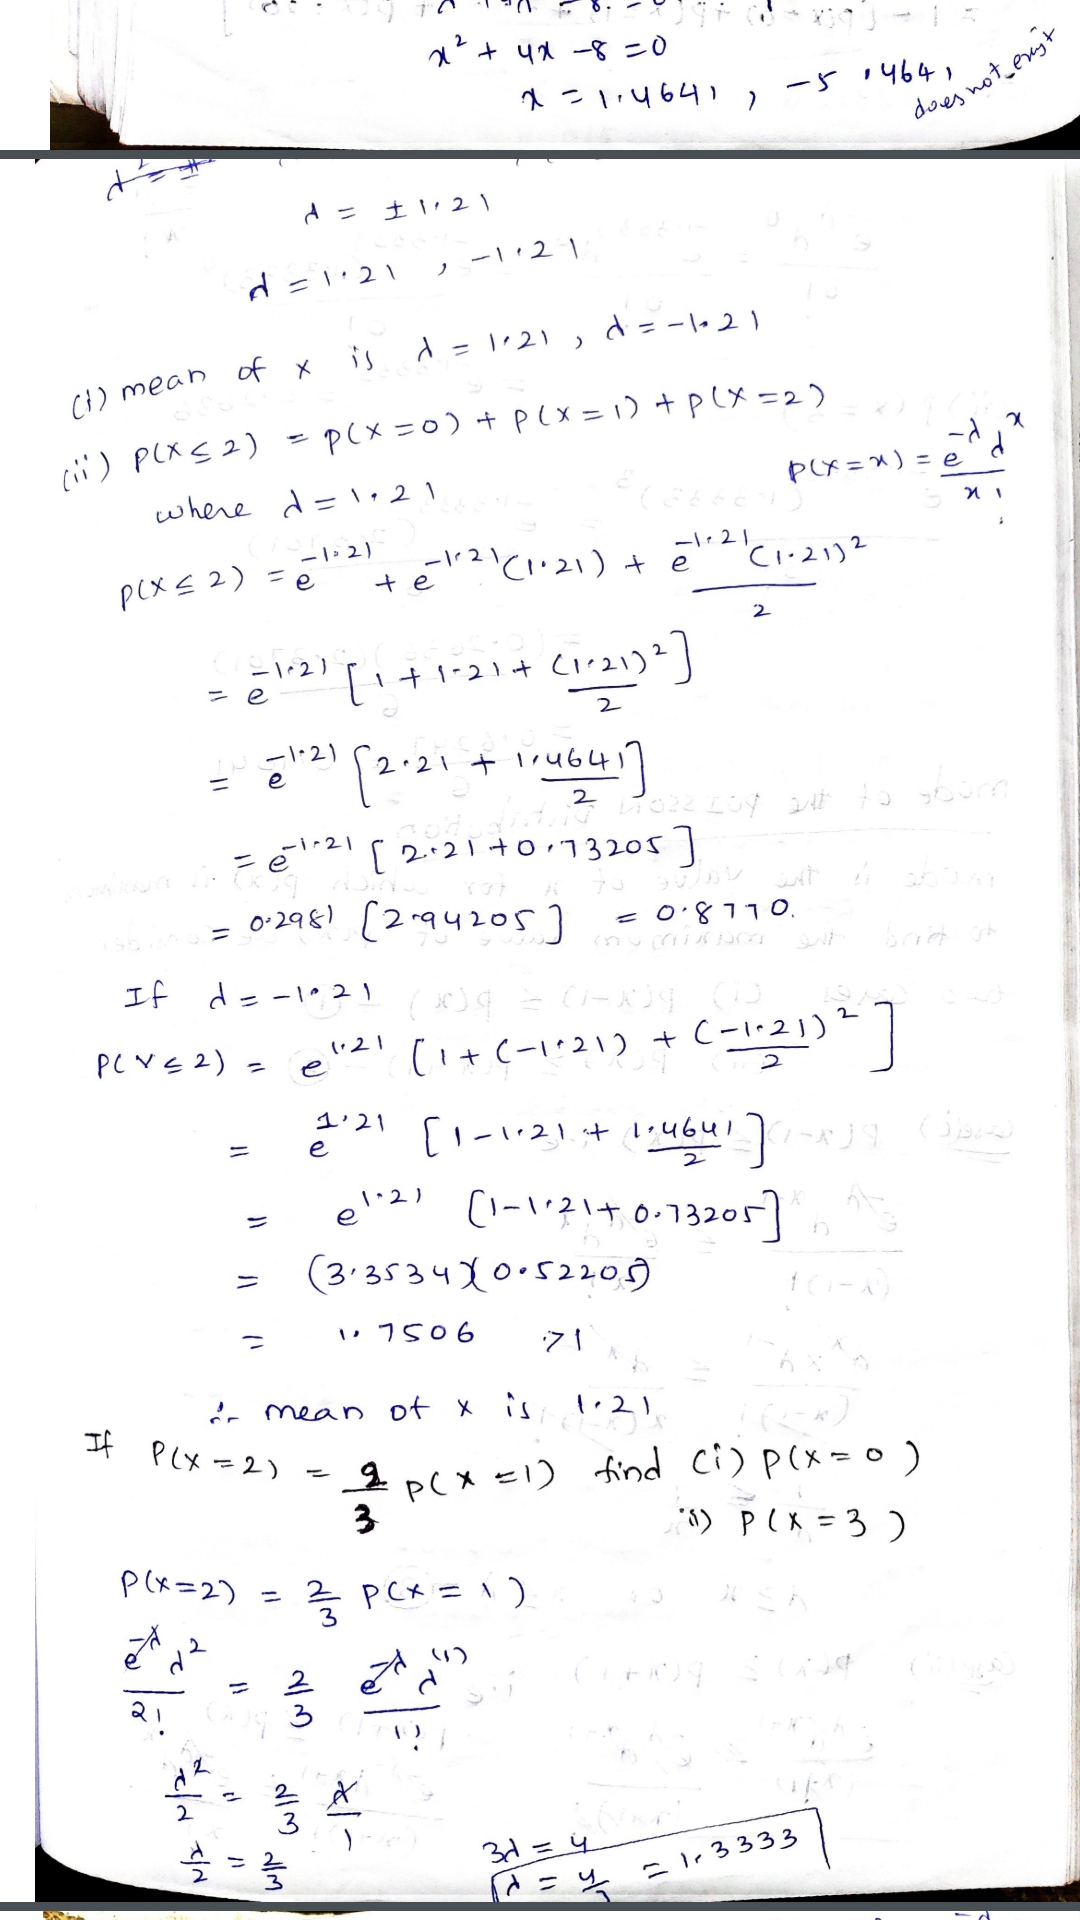 x² + 4x - 8 = 0
x = 1.4641, -5.4641 does not exist
λ = ± 1.21
λ = 1.21 , -1.21
(i) mean of x is λ = 1.21 , λ = -1.21
(ii) P(X ≤ 2) = P(X = 0) + P(X = 1) + P(X = 2)
where λ = 1.21
P(X = x) = e^-λ λ^x / x!
P(X ≤ 2) = e^-1.21 + e^-1.21 (1.21) + e^-1.21 (1.21)² / 2
= e^-1.21 [1 + 1.21 + (1.21)² / 2]
= e^-1.21 [2.21 + 1.4641 / 2]
= e^-1.21 [2.21 + 0.73205]
= 0.2981 [2.94205] = 0.8770.
If λ = -1.21
P(X ≤ 2) = e^1.21 [1 + (-1.21) + (-1.21)² / 2]
= e^1.21 [1 - 1.21 + 1.4641 / 2]
= e^1.21 [1 - 1.21 + 0.73205]
= (3.3534)(0.52205)
= 1.7506 >1
∴ mean of x is 1.21
If P(X = 2) = 2/3 P(X = 1) find (i) P(X = 0)
ii) P(X = 3)
P(X = 2) = 2/3 P(X = 1)
e^-λ λ² / 2! = 2/3 e^-λ λ^(1) / 1!
λ²/2 = 2/3 λ/1
λ/2 = 2/3
3λ = 4
λ = 4/3 = 1.3333